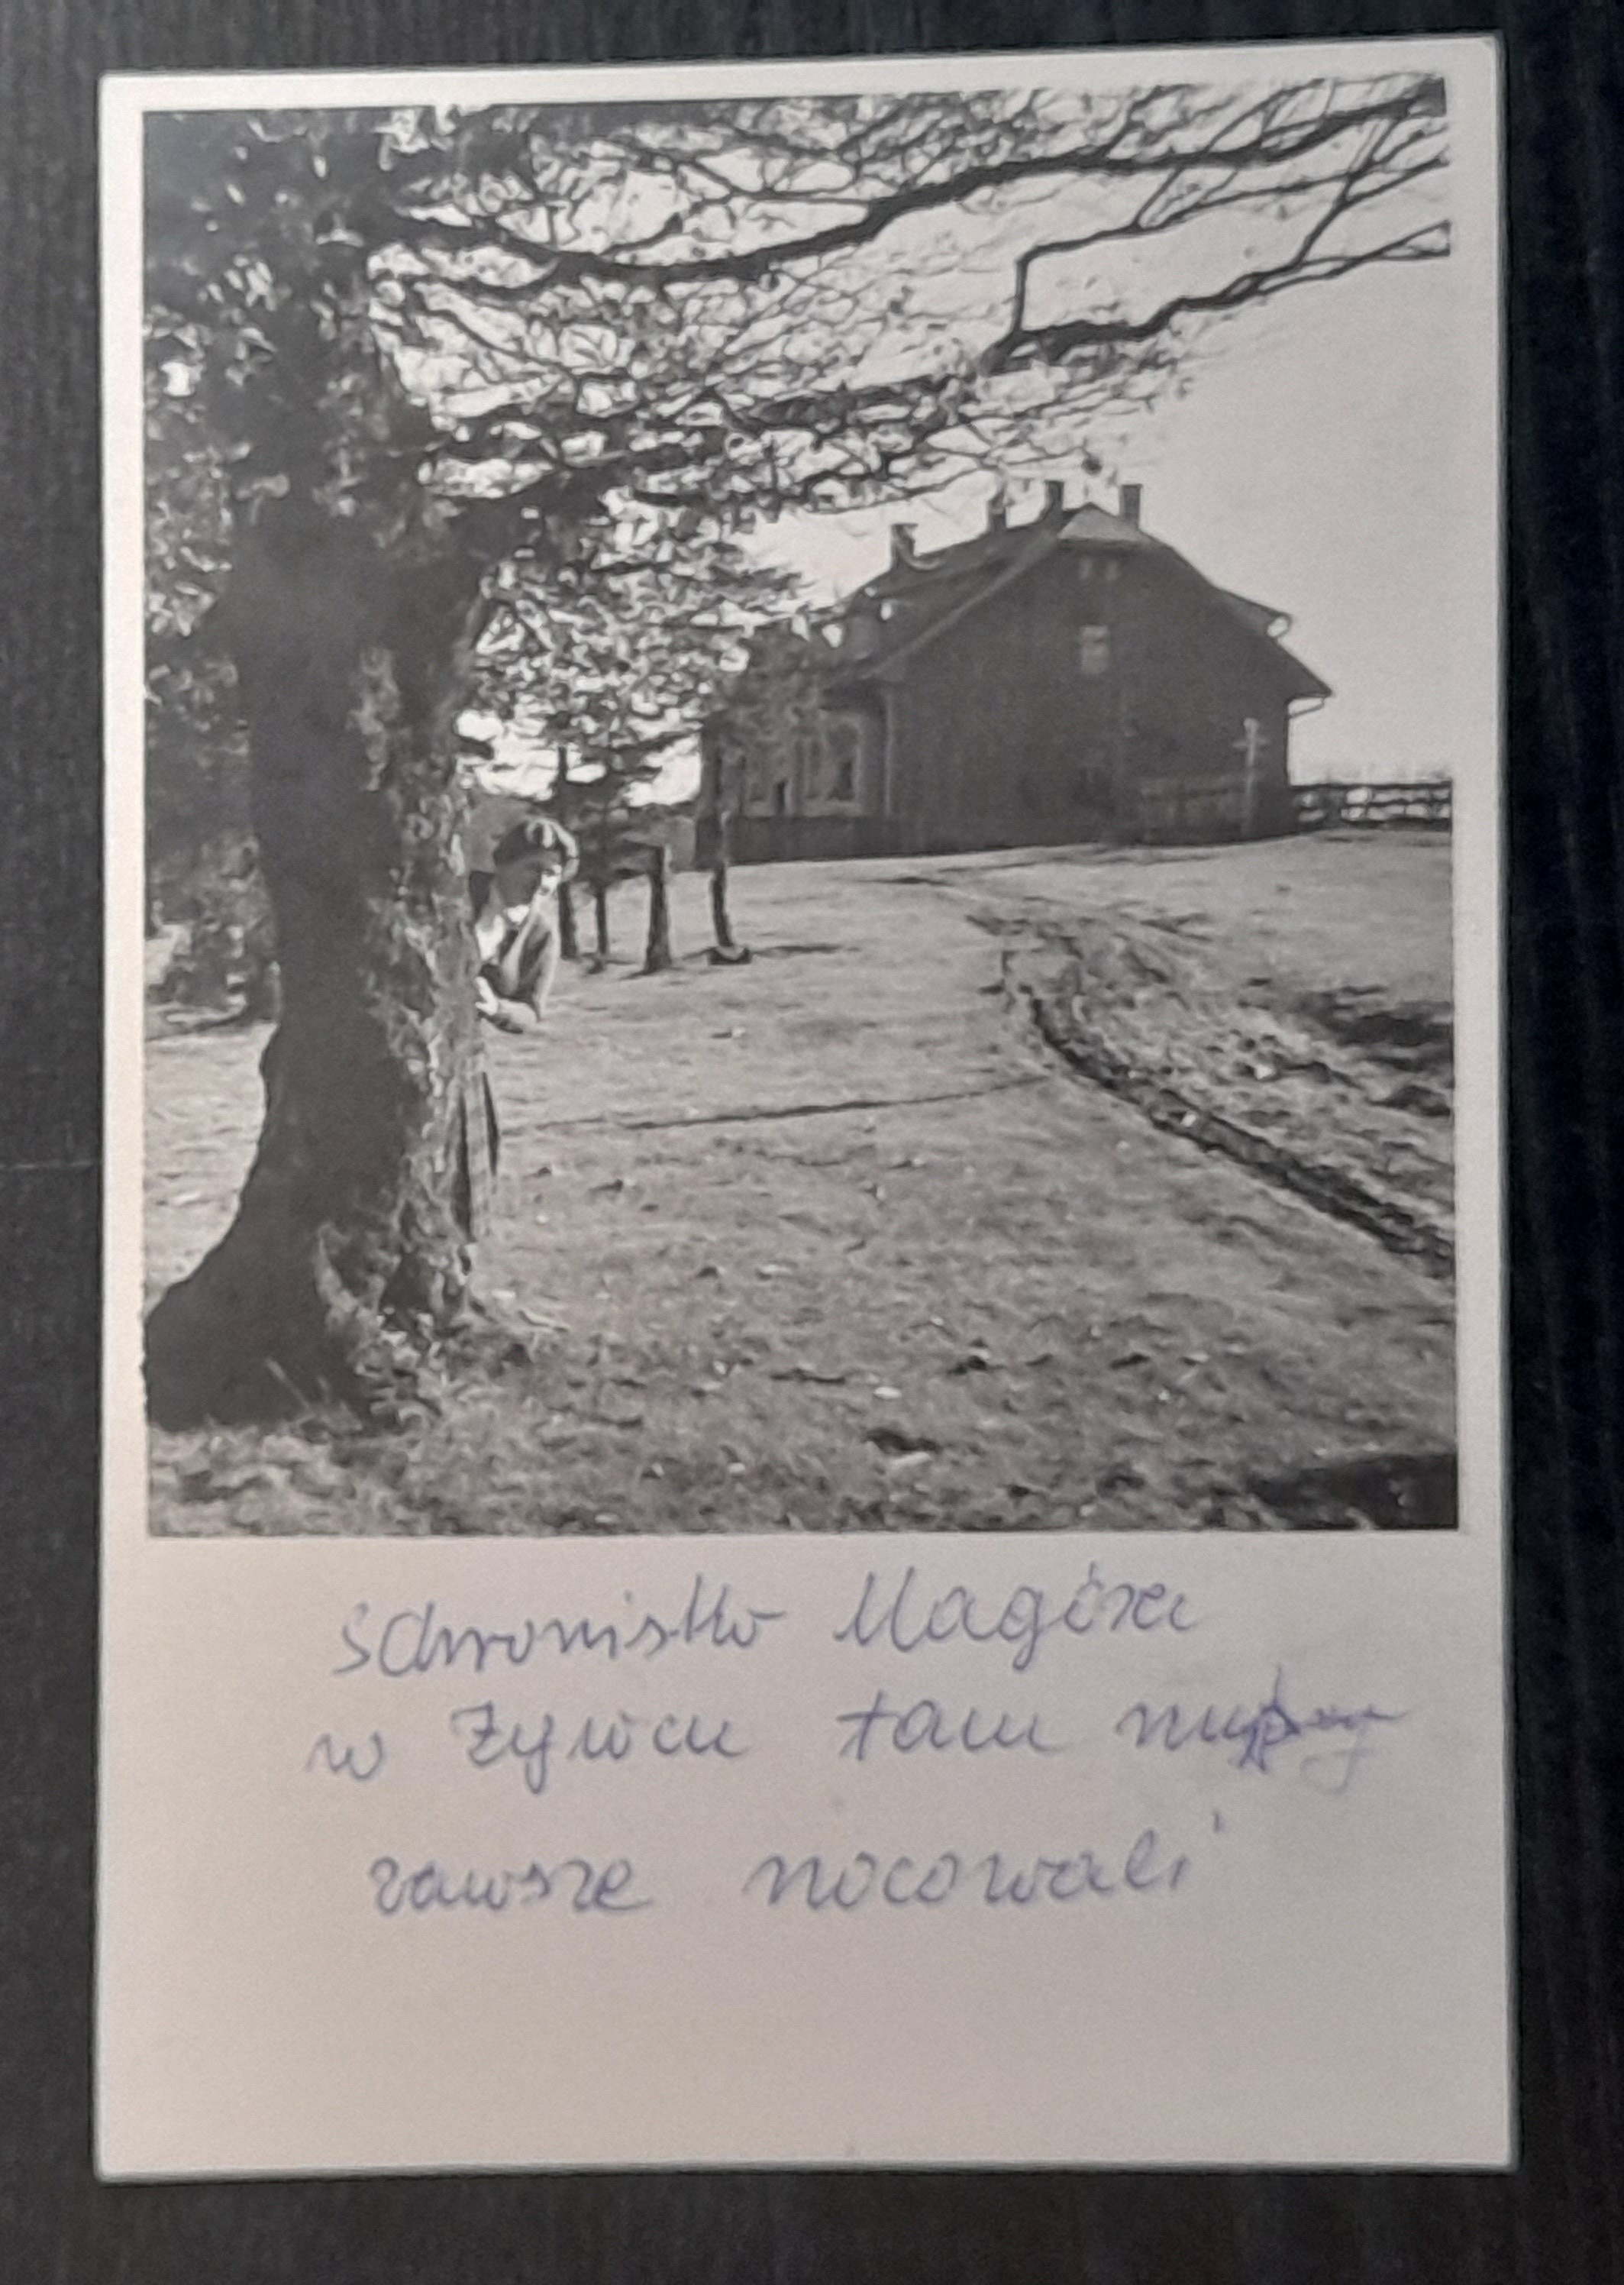 Schronisko Magóra
w Żywcu tam
zawsze nocowali